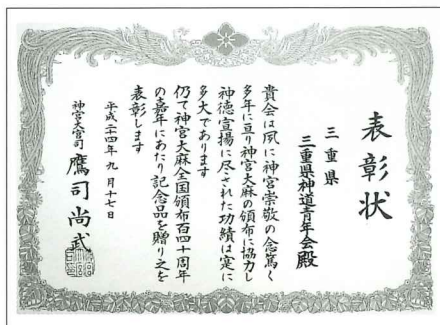 表彰状
三重県
三重県神道青年会殿
貴会は夙に神宮崇敬の念篤く
多年に亘り神宮大麻の頒布に協力し
神徳宣揚に尽された功績は寔に
多大であります
仍て神宮大麻全国頒布百四十周年
の嘉年にあたり記念品を贈り之を
表彰します
平成二十四年九月十七日
神宮大宮司 鷹司尚武